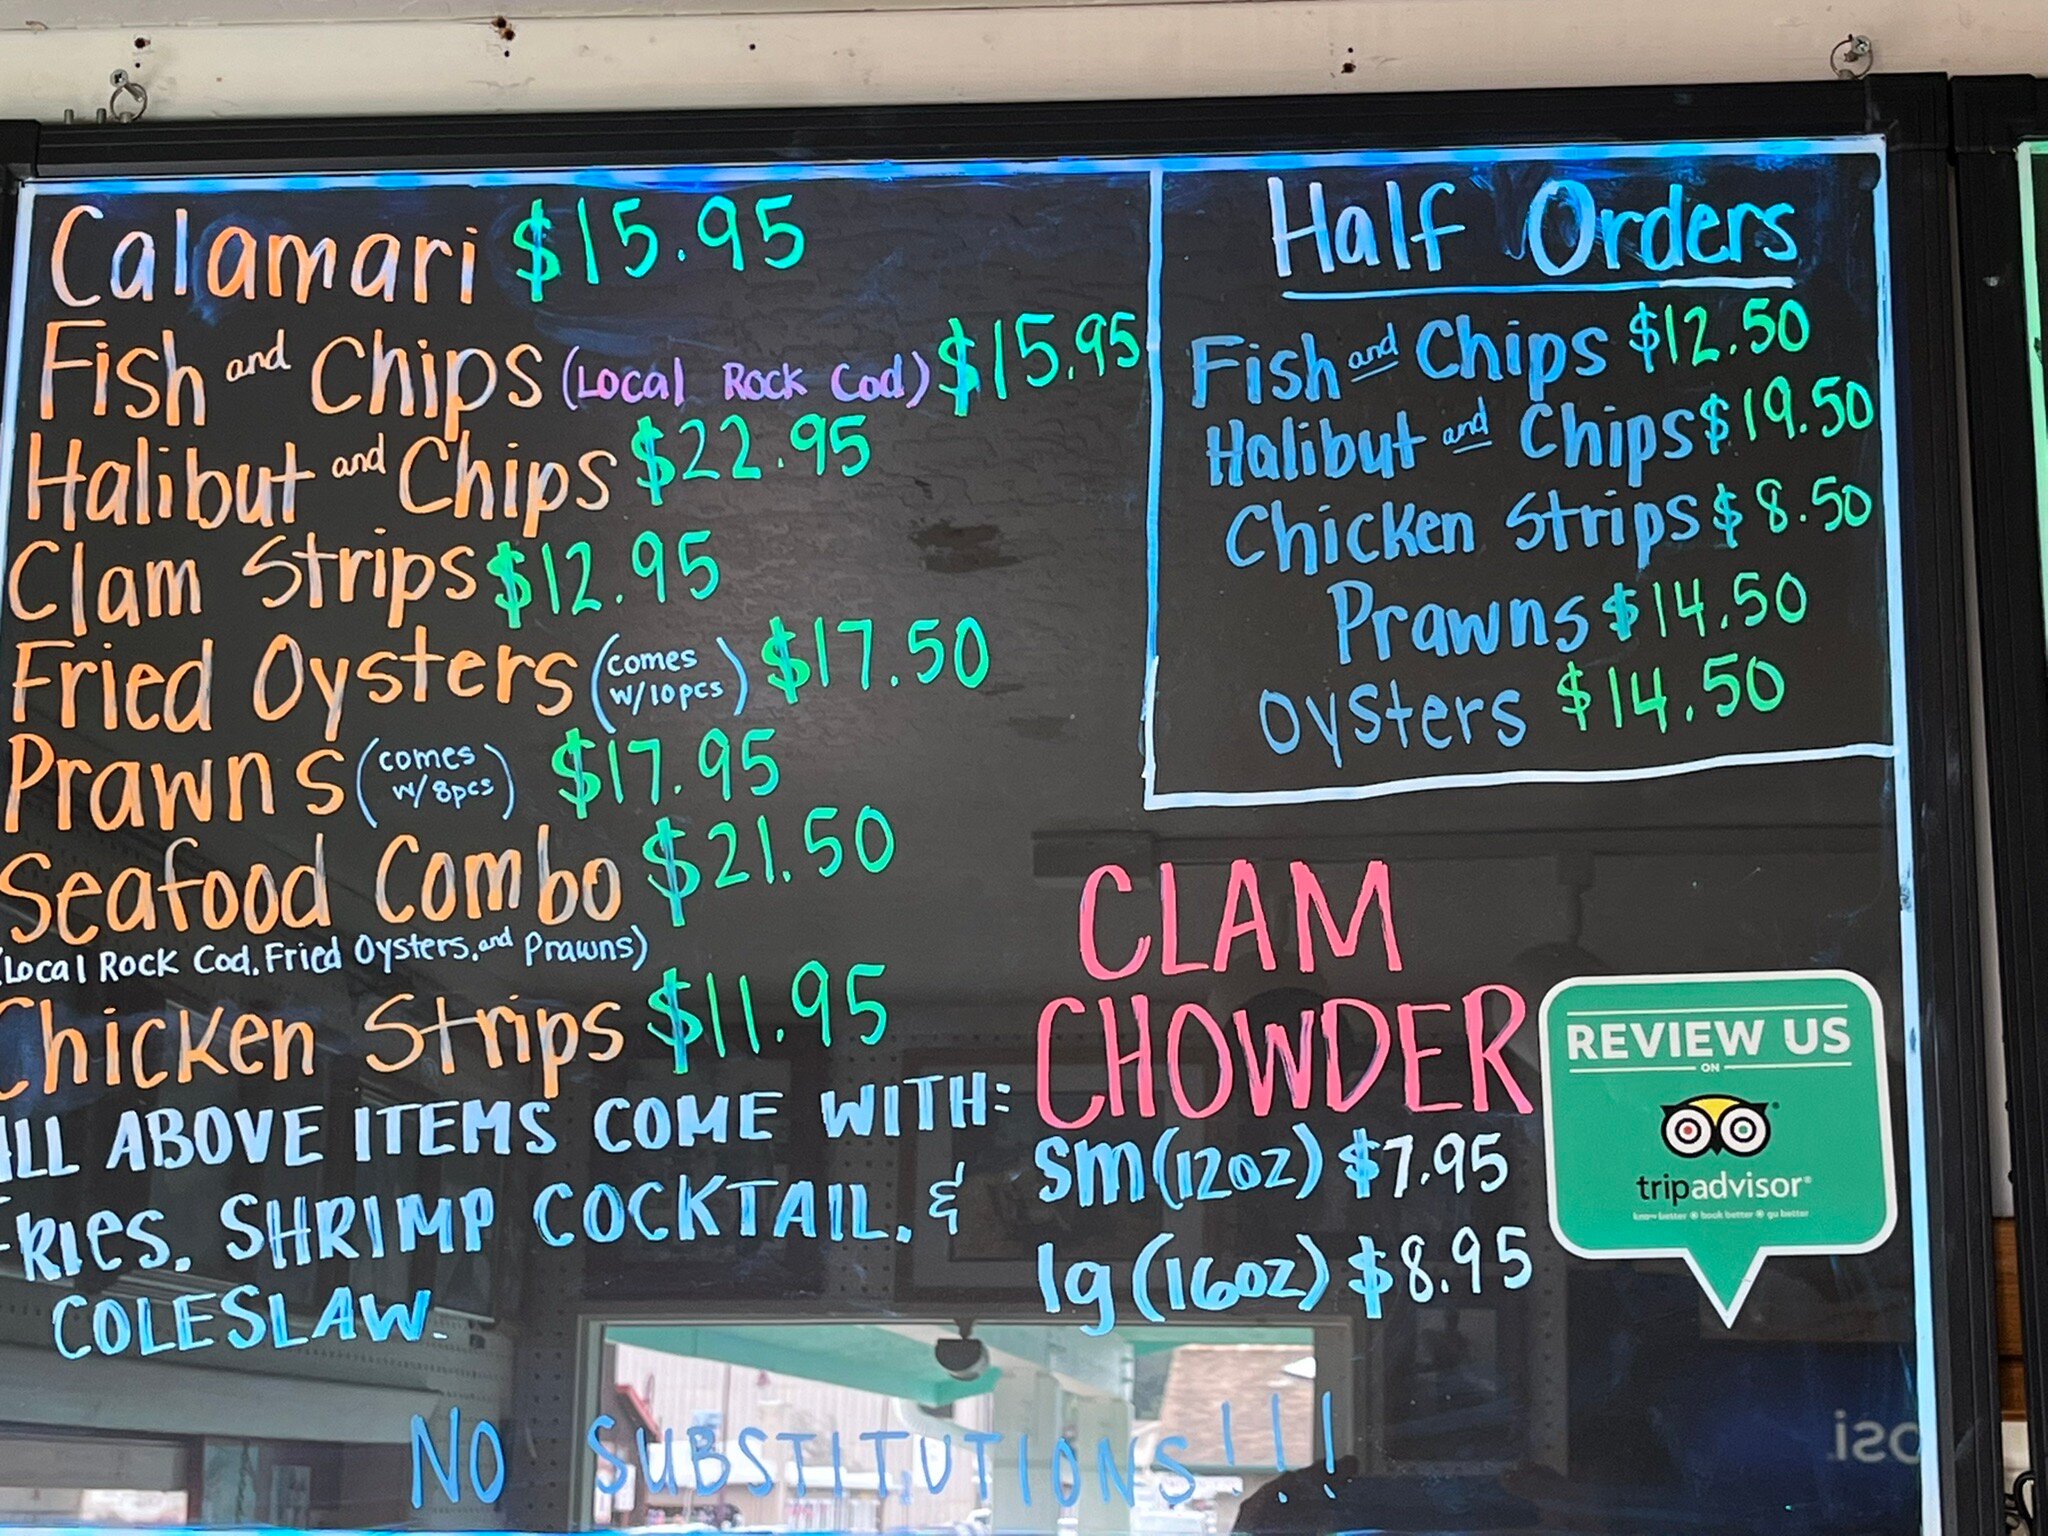 Calamari $15.95
Fish and Chips (Local Rock Cod) $15.95
Halibut and Chips $22.95
Clam Strips $12.95
Fried Oysters (comes w/10pcs) $17.50
Prawns (comes w/8pcs) $17.95
Seafood Combo $21.50
(Local Rock Cod, Fried Oysters, and Prawns)
Chicken Strips $11.95
ALL ABOVE ITEMS COME WITH:
FRIES, SHRIMP COCKTAIL, &
COLESLAW.
NO SUBSTITUTIONS!!!
Half Orders
Fish and Chips $12.50
Halibut and Chips $19.50
Chicken Strips $8.50
Prawns $14.50
Oysters $14.50
CLAM
CHOWDER
sm (12oz) $7.95
lg (16oz) $8.95
REVIEW US
ON
tripadvisor®
know better book better go better